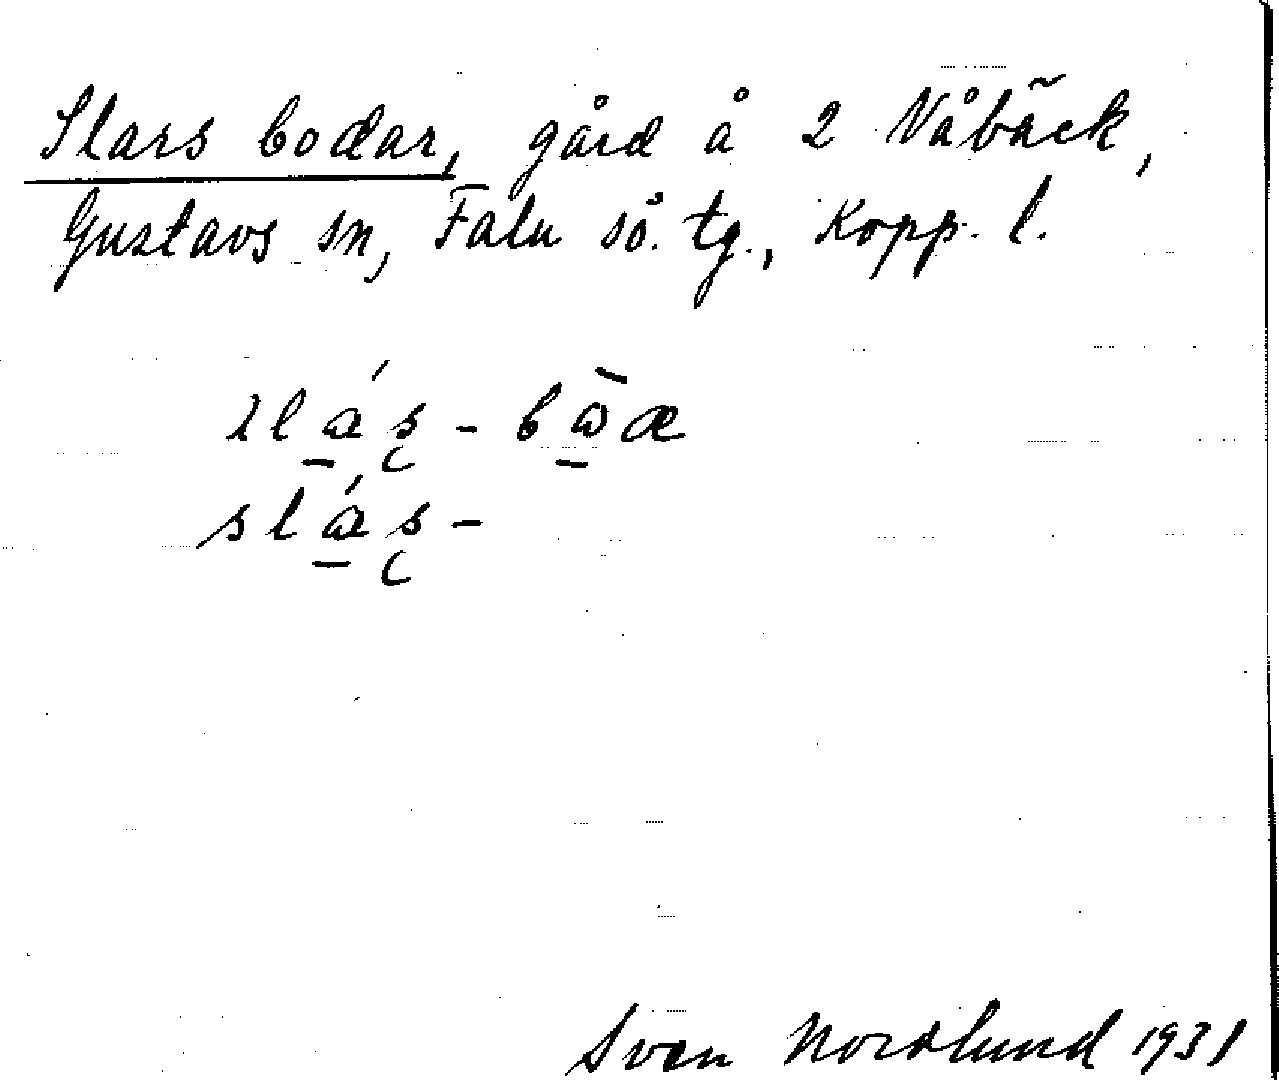 Slars bodar, gård å 2 Våbäck,
Gustavs sn, Falu sö. tg., Kopp. l.
slás - bωæ
slás -
Sven Nordlund 1931